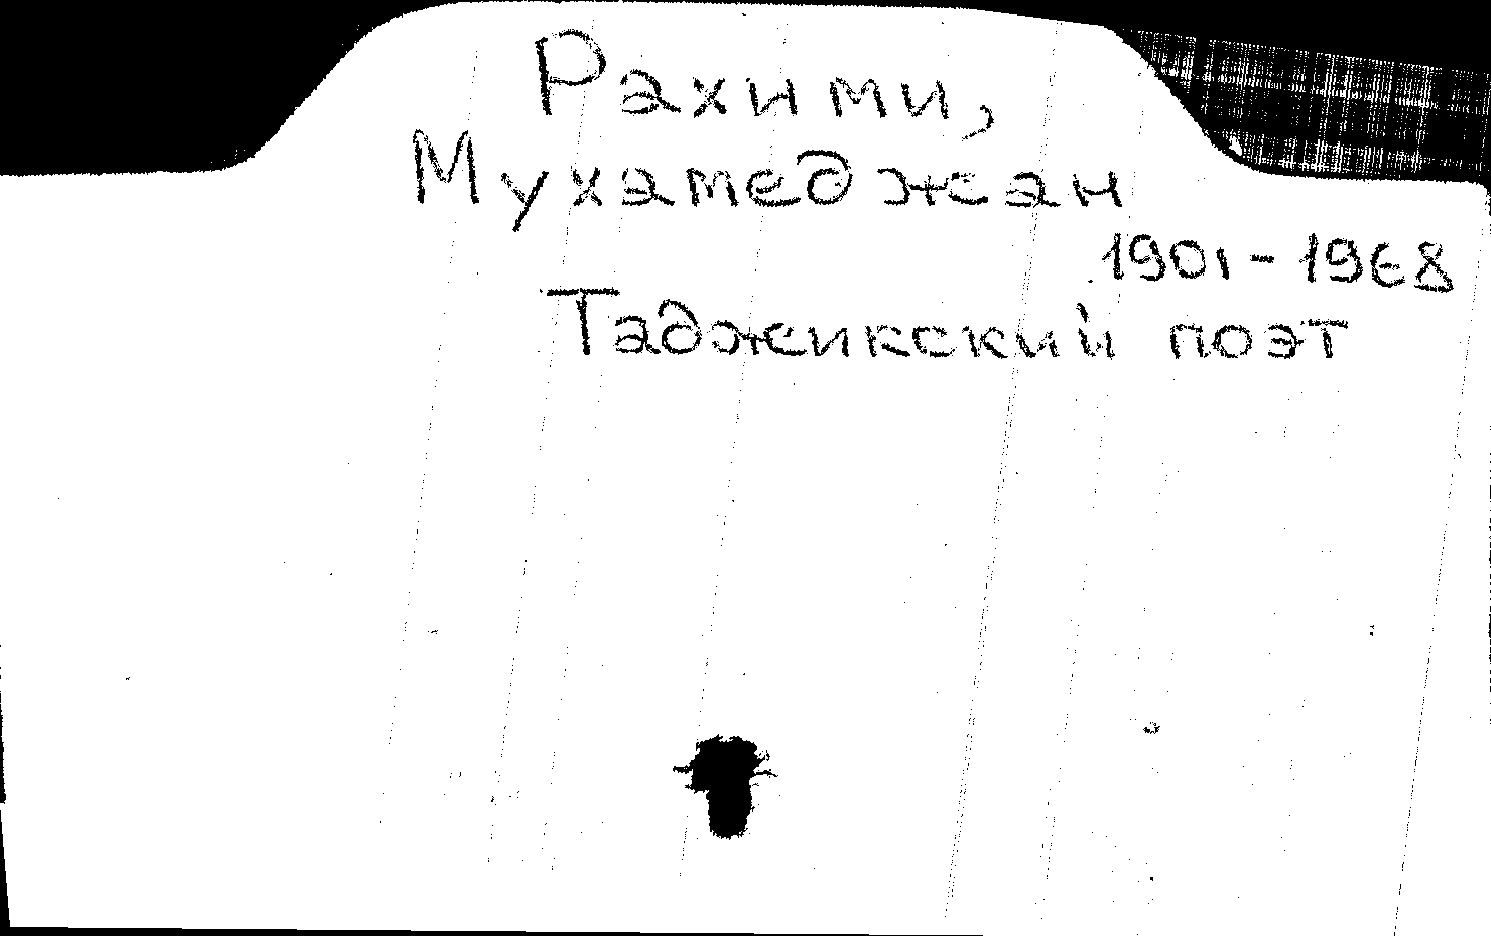 Рахими,
Мухамеджан
1901-1968
Таджикский поэт